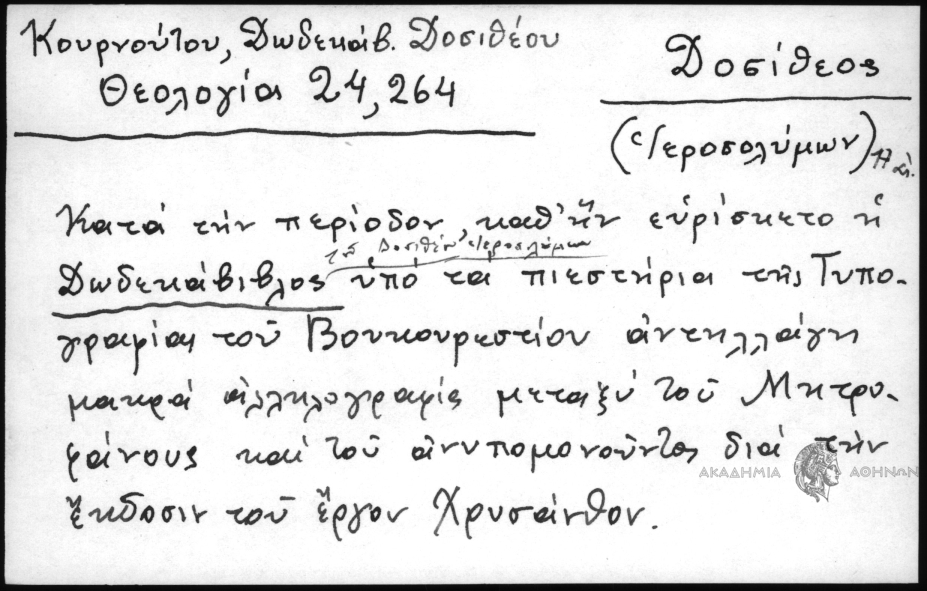 Κουρνούτου, Δωδεκάβ. Δοσιθέου
Θεολογία 24, 264
Δοσίθεος
(Ἱεροσολύμων)
Κατά τήν περίοδον, καθ' ἥν εὑρίσκετο ἡ
τοῦ Δοσιθέου Ἱεροσολύμων
Δωδεκάβιβλος ὑπό τά πιεστήρια τῆς Τυπο-
γραφίας τοῦ Βουκουρεστίου ἀντηλλάγη
μακρά ἀλληλογραφία μεταξύ τοῦ Μητρο-
φάνους καί τοῦ ἀνυπομονοῦντος διά τήν
ἔκδοσιν τοῦ ἔργου Χρυσάνθου.
ΑΚΑΔΗΜΙΑ ΑΘΗΝΩΝ